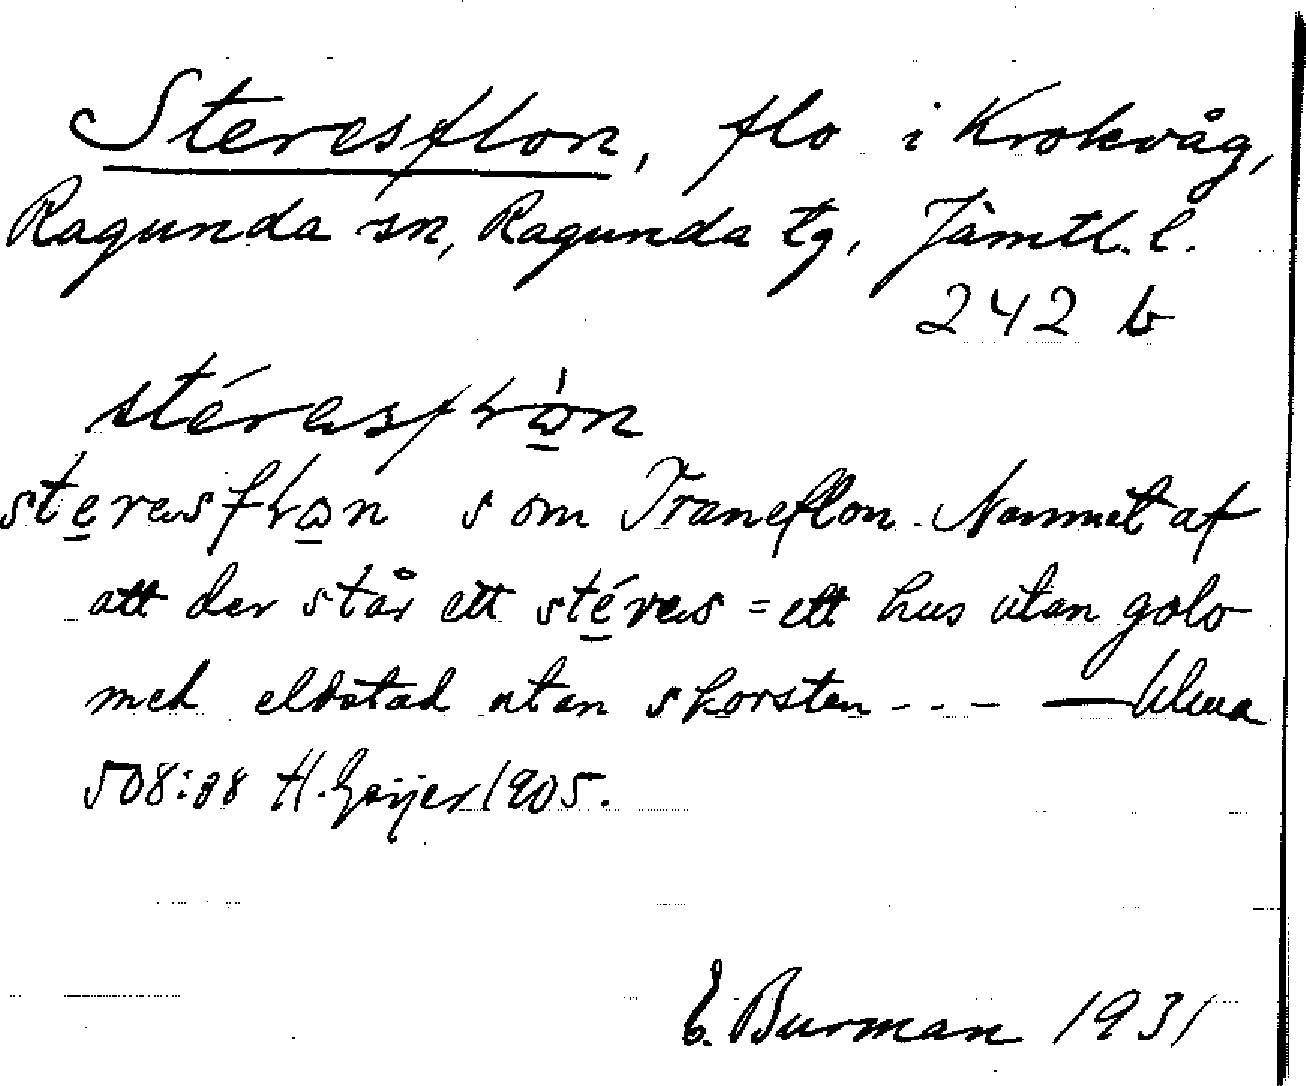 Steresflon, flo i Krokvåg,
Ragunda sn, Ragunda tg, Jämtl. l.
242 b
stérasflon
sterasflon som Traneflon. Namnet af
att der står ett stéras = ett hus utan golv
med eldstad utan skorsten --- — Ulma
508:38 H. Geijer 1905.
E. Burman 1931